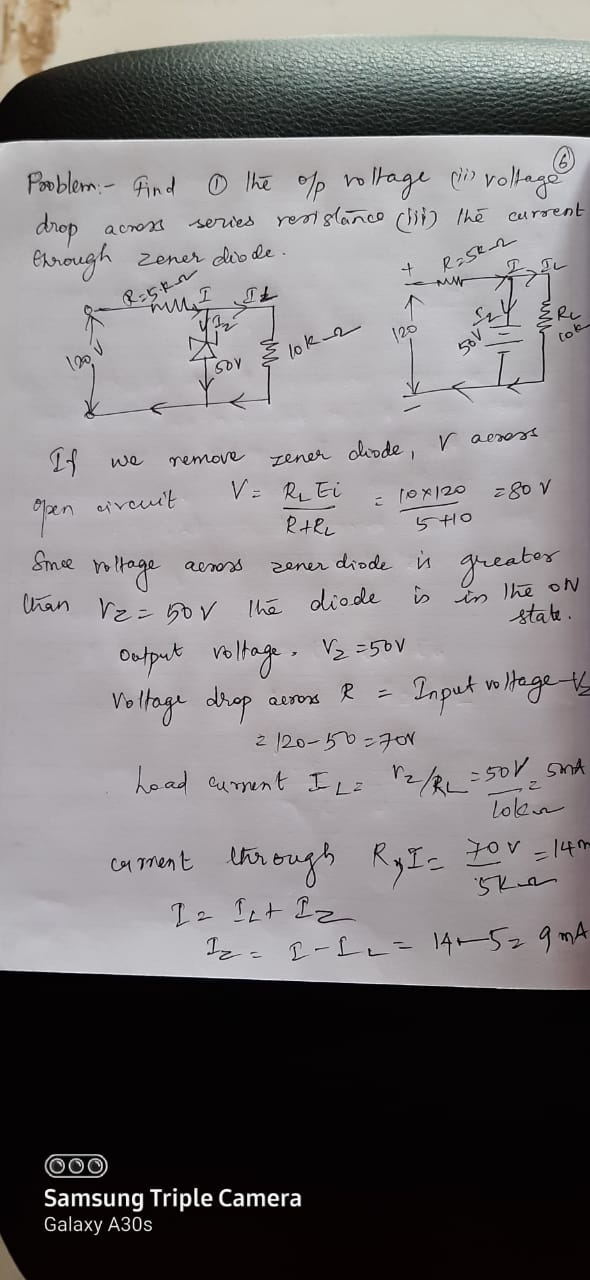 6
Problem:- Find ① the o/p voltage (ii) voltage
drop across series resistance (iii) the current
through zener diode.
R=5kΩ I IL
120V IZ 50V 10kΩ
+ R=5kΩ I IL
120 50V RL 10k
−
If we remove zener diode, V across
open circuit V = RL Ei / R+RL = 10×120 / 5+10 = 80 V
Since voltage across zener diode is greater
than VZ = 50V the diode is in the ON
state.
Output voltage, VZ = 50V
Voltage drop across R = Input voltage - VZ
= 120-50 = 70V
Load current IL = VZ/RL = 50V / 10kΩ = 5mA
current through R, I = 70V / 5kΩ = 14m
I = IL + IZ
IZ = I - IL = 14-5 = 9 mA
Samsung Triple Camera
Galaxy A30s